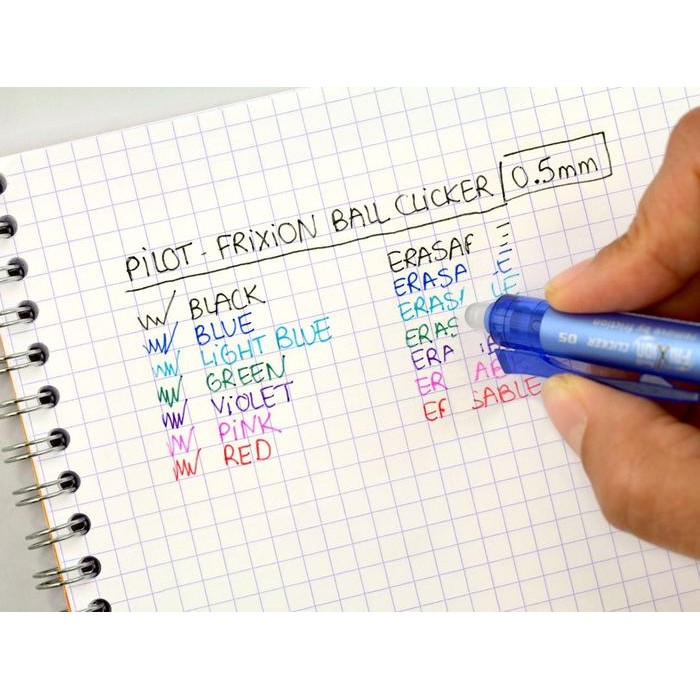 PiLOT - FRiXiON BALL CLiCKER 0.5mm
BLACK
BLUE
LiGHT BLUE
GREEN
ViOLET
PiNK
RED
ERASA E
ERASA E
ERAS LE
ERAS
ERA LE
ER AB
E SABLE
CLICKER 05